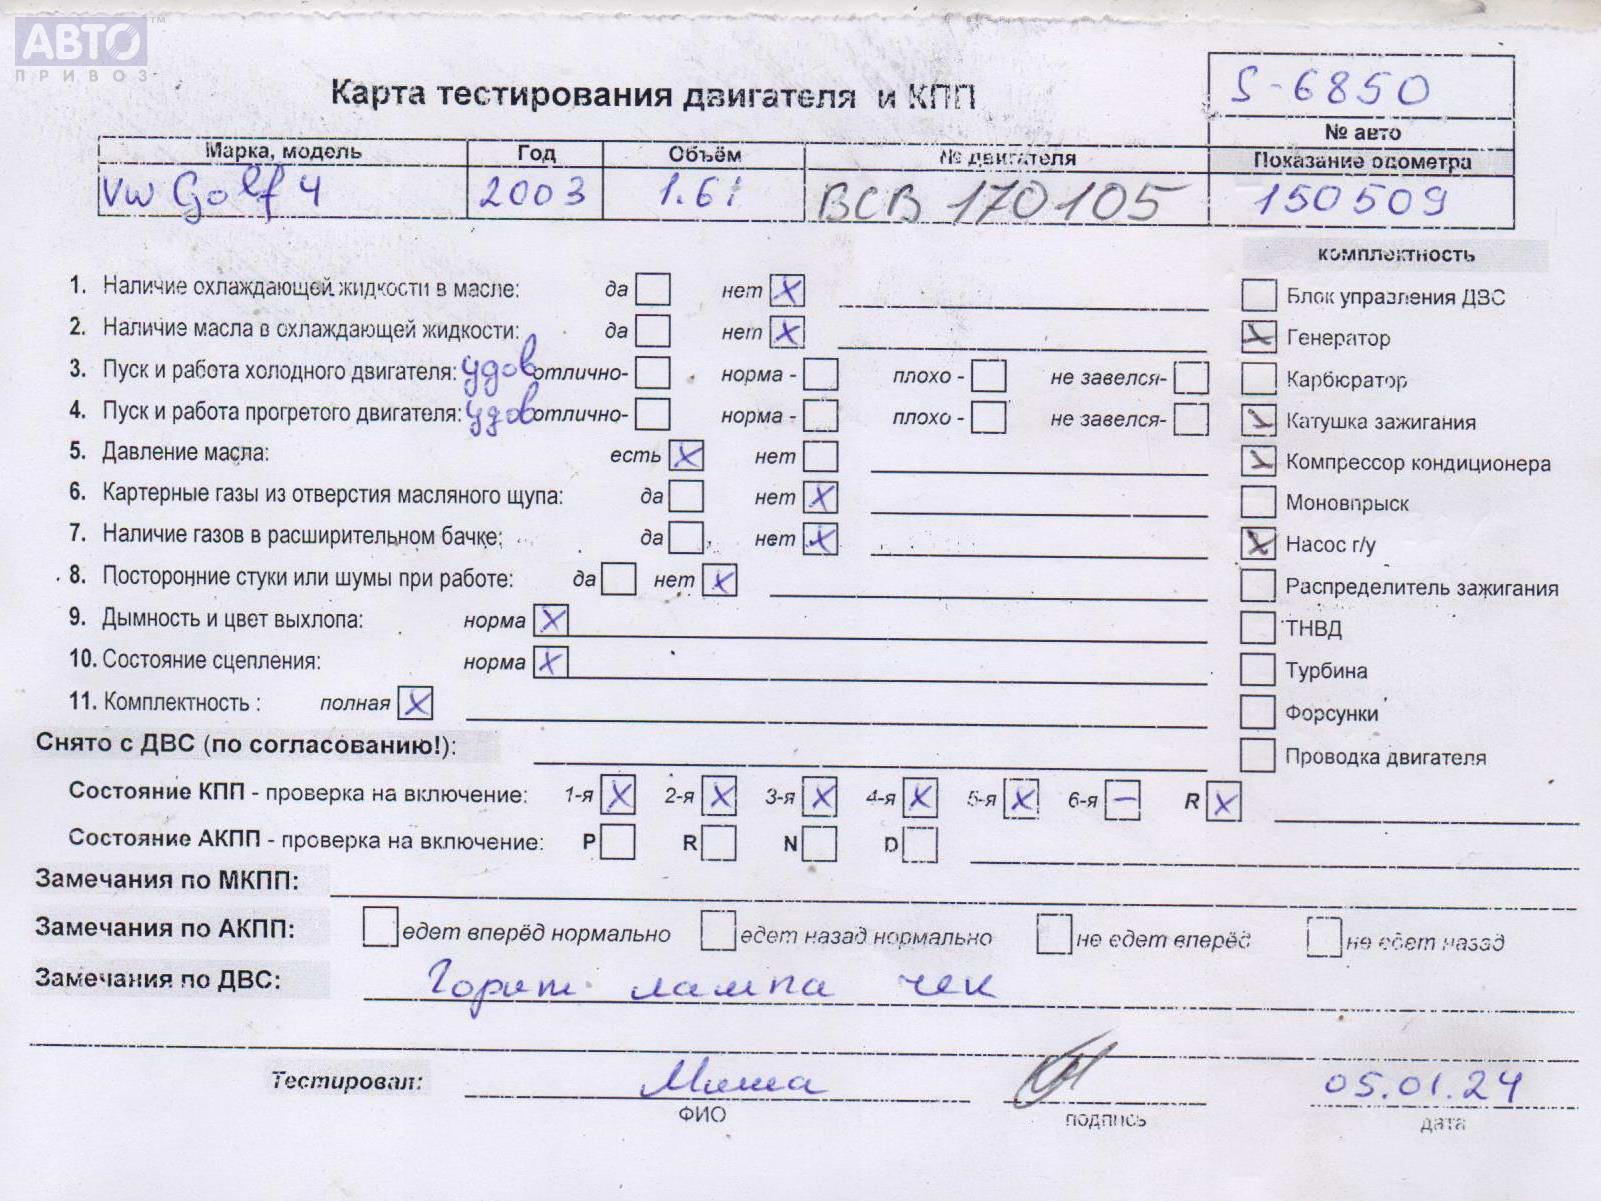 АВТО™
ПРИВОЗ
Карта тестирования двигателя и КПП
S-6850
№ авто
Марка, модель Год Объём № двигателя Показание одометра
VW Golf 4 2003 1.6i BCB 170105 150509
комплектность
1. Наличие охлаждающей жидкости в масле: да нет X
2. Наличие масла в охлаждающей жидкости: да нет X
3. Пуск и работа холодного двигателя: удов отлично- норма - плохо - не завелся-
4. Пуск и работа прогретого двигателя: удов отлично- норма - плохо - не завелся-
5. Давление масла: есть X нет
6. Картерные газы из отверстия масляного щупа: да нет X
7. Наличие газов в расширительном бачке: да нет X
8. Посторонние стуки или шумы при работе: да нет X
9. Дымность и цвет выхлопа: норма X
10. Состояние сцепления: норма X
11. Комплектность : полная X
Блок управления ДВС
X Генератор
Карбюратор
Катушка зажигания
Компрессор кондиционера
Моновпрыск
X Насос г/у
Распределитель зажигания
ТНВД
Турбина
Форсунки
Проводка двигателя
Снято с ДВС (по согласованию!):
Состояние КПП - проверка на включение: 1-я X 2-я X 3-я X 4-я X 5-я X 6-я – R X
Состояние АКПП - проверка на включение: P R N D
Замечания по МКПП:
Замечания по АКПП: едет вперёд нормально едет назад нормально не едет вперёд не едет назад
Замечания по ДВС: Горит лампа чек
Тестировал: Миша 05.01.24
ФИО подпись дата